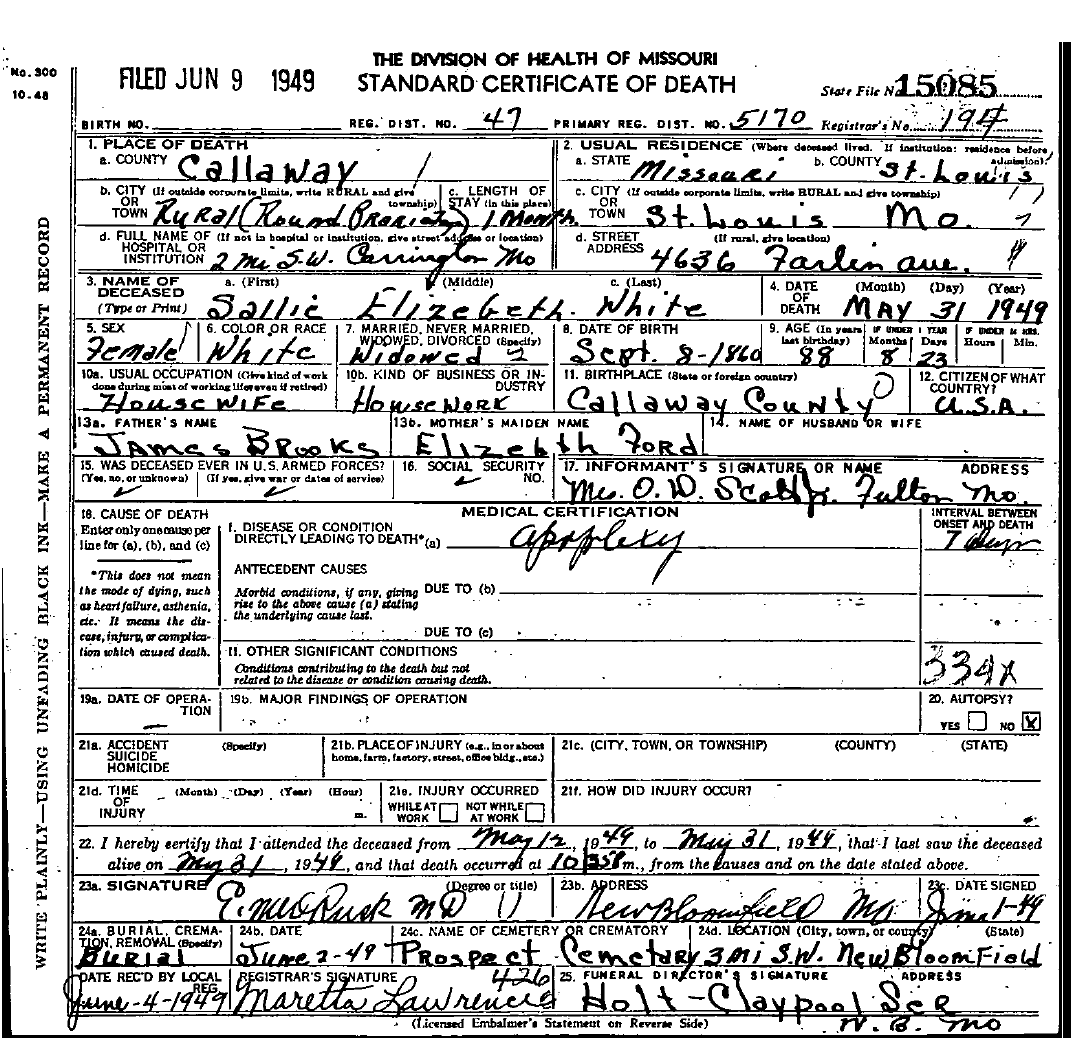 THE DIVISION OF HEALTH OF MISSOURI
No. 300
10-48
FILED JUN 9 1949 STANDARD CERTIFICATE OF DEATH State File No. 15085
BIRTH NO. REG. DIST. NO. 47 PRIMARY REG. DIST. NO. 5170 Registrar's No. 194
1. PLACE OF DEATH
a. COUNTY Callaway
2. USUAL RESIDENCE (Where deceased lived. If institution: residence before admission)
a. STATE Missouri b. COUNTY St. Louis
b. CITY (If outside corporate limits, write RURAL and give township) OR TOWN Rural (Round Prairie)
c. LENGTH OF STAY (in this place) 1 Month
c. CITY (If outside corporate limits, write RURAL and give township) OR TOWN St. Louis Mo.
d. FULL NAME OF HOSPITAL OR INSTITUTION (If not in hospital or institution, give street address or location) 2 Mi S.W. Carrington Mo
d. STREET ADDRESS (If rural, give location) 4636 Farlin ave.
3. NAME OF DECEASED (Type or Print)
a. (First) Sallie b. (Middle) Elizebeth. c. (Last) White
4. DATE OF DEATH (Month) (Day) (Year) MAY 31 1949
5. SEX Female
6. COLOR OR RACE White
7. MARRIED, NEVER MARRIED, WIDOWED, DIVORCED (Specify) Widowed 2
8. DATE OF BIRTH Sept. 8-1860
9. AGE (In years last birthday) 88 IF UNDER 1 YEAR Months 8 Days 23 IF UNDER 24 HRS. Hours Min.
10a. USUAL OCCUPATION (Give kind of work done during most of working life, even if retired) Housewife
10b. KIND OF BUSINESS OR INDUSTRY Housework
11. BIRTHPLACE (State or foreign country) Callaway County
12. CITIZEN OF WHAT COUNTRY? U.S.A.
13a. FATHER'S NAME James Brooks
13b. MOTHER'S MAIDEN NAME Elizebth Ford
14. NAME OF HUSBAND OR WIFE
15. WAS DECEASED EVER IN U.S. ARMED FORCES? (Yes, no, or unknown) (If yes, give war or dates of service)
16. SOCIAL SECURITY NO.
17. INFORMANT'S SIGNATURE OR NAME ADDRESS
Mrs. O. D. Scott Jr. Fulton Mo.
18. CAUSE OF DEATH
Enter only one cause per line for (a), (b), and (c)
*This does not mean the mode of dying, such as heart failure, asthenia, etc. It means the disease, injury, or complication which caused death.
MEDICAL CERTIFICATION
INTERVAL BETWEEN ONSET AND DEATH
I. DISEASE OR CONDITION DIRECTLY LEADING TO DEATH* (a) apoplexy 7 Days
ANTECEDENT CAUSES
Morbid conditions, if any, giving rise to the above cause (a) stating the underlying cause last.
DUE TO (b)
DUE TO (c)
II. OTHER SIGNIFICANT CONDITIONS
Conditions contributing to the death but not related to the disease or condition causing death.
334X
19a. DATE OF OPERATION
19b. MAJOR FINDINGS OF OPERATION
20. AUTOPSY? YES NO X
21a. ACCIDENT SUICIDE HOMICIDE (Specify)
21b. PLACE OF INJURY (e.g., in or about home, farm, factory, street, office bldg., etc.)
21c. (CITY, TOWN, OR TOWNSHIP) (COUNTY) (STATE)
21d. TIME OF INJURY (Month) (Day) (Year) (Hour) m.
21e. INJURY OCCURRED WHILE AT WORK NOT WHILE AT WORK
21f. HOW DID INJURY OCCUR?
22. I hereby certify that I attended the deceased from May 12, 1949, to May 31, 1949, that I last saw the deceased
alive on May 31, 1949, and that death occurred at 10:35P m., from the causes and on the date stated above.
23a. SIGNATURE (Degree or title) 23b. ADDRESS 23c. DATE SIGNED
MD New Bloomfield Mo June 1-49
24a. BURIAL, CREMATION, REMOVAL (Specify) Burial
24b. DATE June 2-49
24c. NAME OF CEMETERY OR CREMATORY Prospect Cemetary
24d. LOCATION (City, town, or county) (State) 3 Mi S.W. New Bloomfield
DATE REC'D BY LOCAL REG. June-4-1949
REGISTRAR'S SIGNATURE 426 Maretta Lawrence
25. FUNERAL DIRECTOR'S SIGNATURE ADDRESS
Holt-Claypool
N. B. Mo
(Licensed Embalmer's Statement on Reverse Side)
WRITE PLAINLY—USING UNFADING BLACK INK—MAKE A PERMANENT RECORD